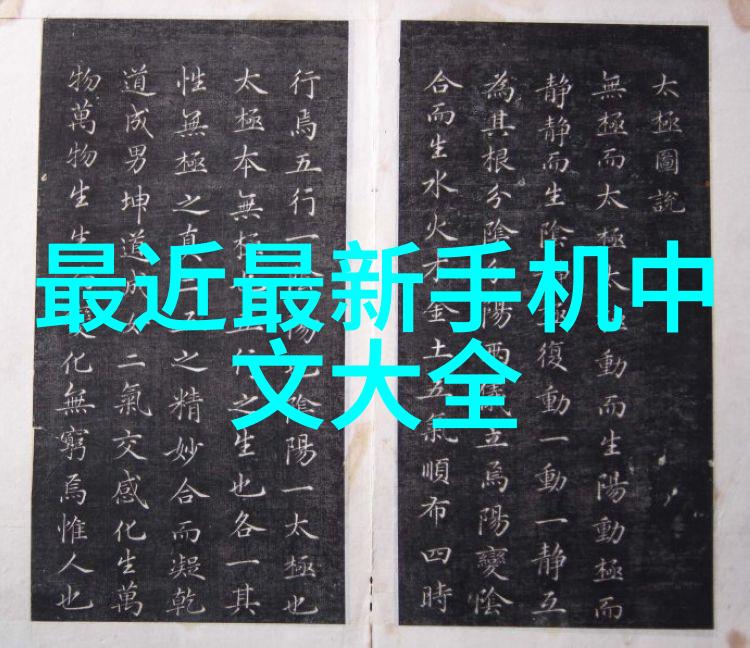 太極圖說
無極而太極太極動而生陽動極而
静静而生陰復動一動一静互
為其根分陰分陽兩儀立焉陽變陰
合而生水火木金土五氣順布四時
行焉五行一陰陽也陰陽一太極也
太極本無極五行之生也各一其
性無極之真二五之精妙合而凝乾
道成男坤道成女二氣交感化生萬
物萬物生生變化無窮焉惟人也
最近最新手机中
文大全